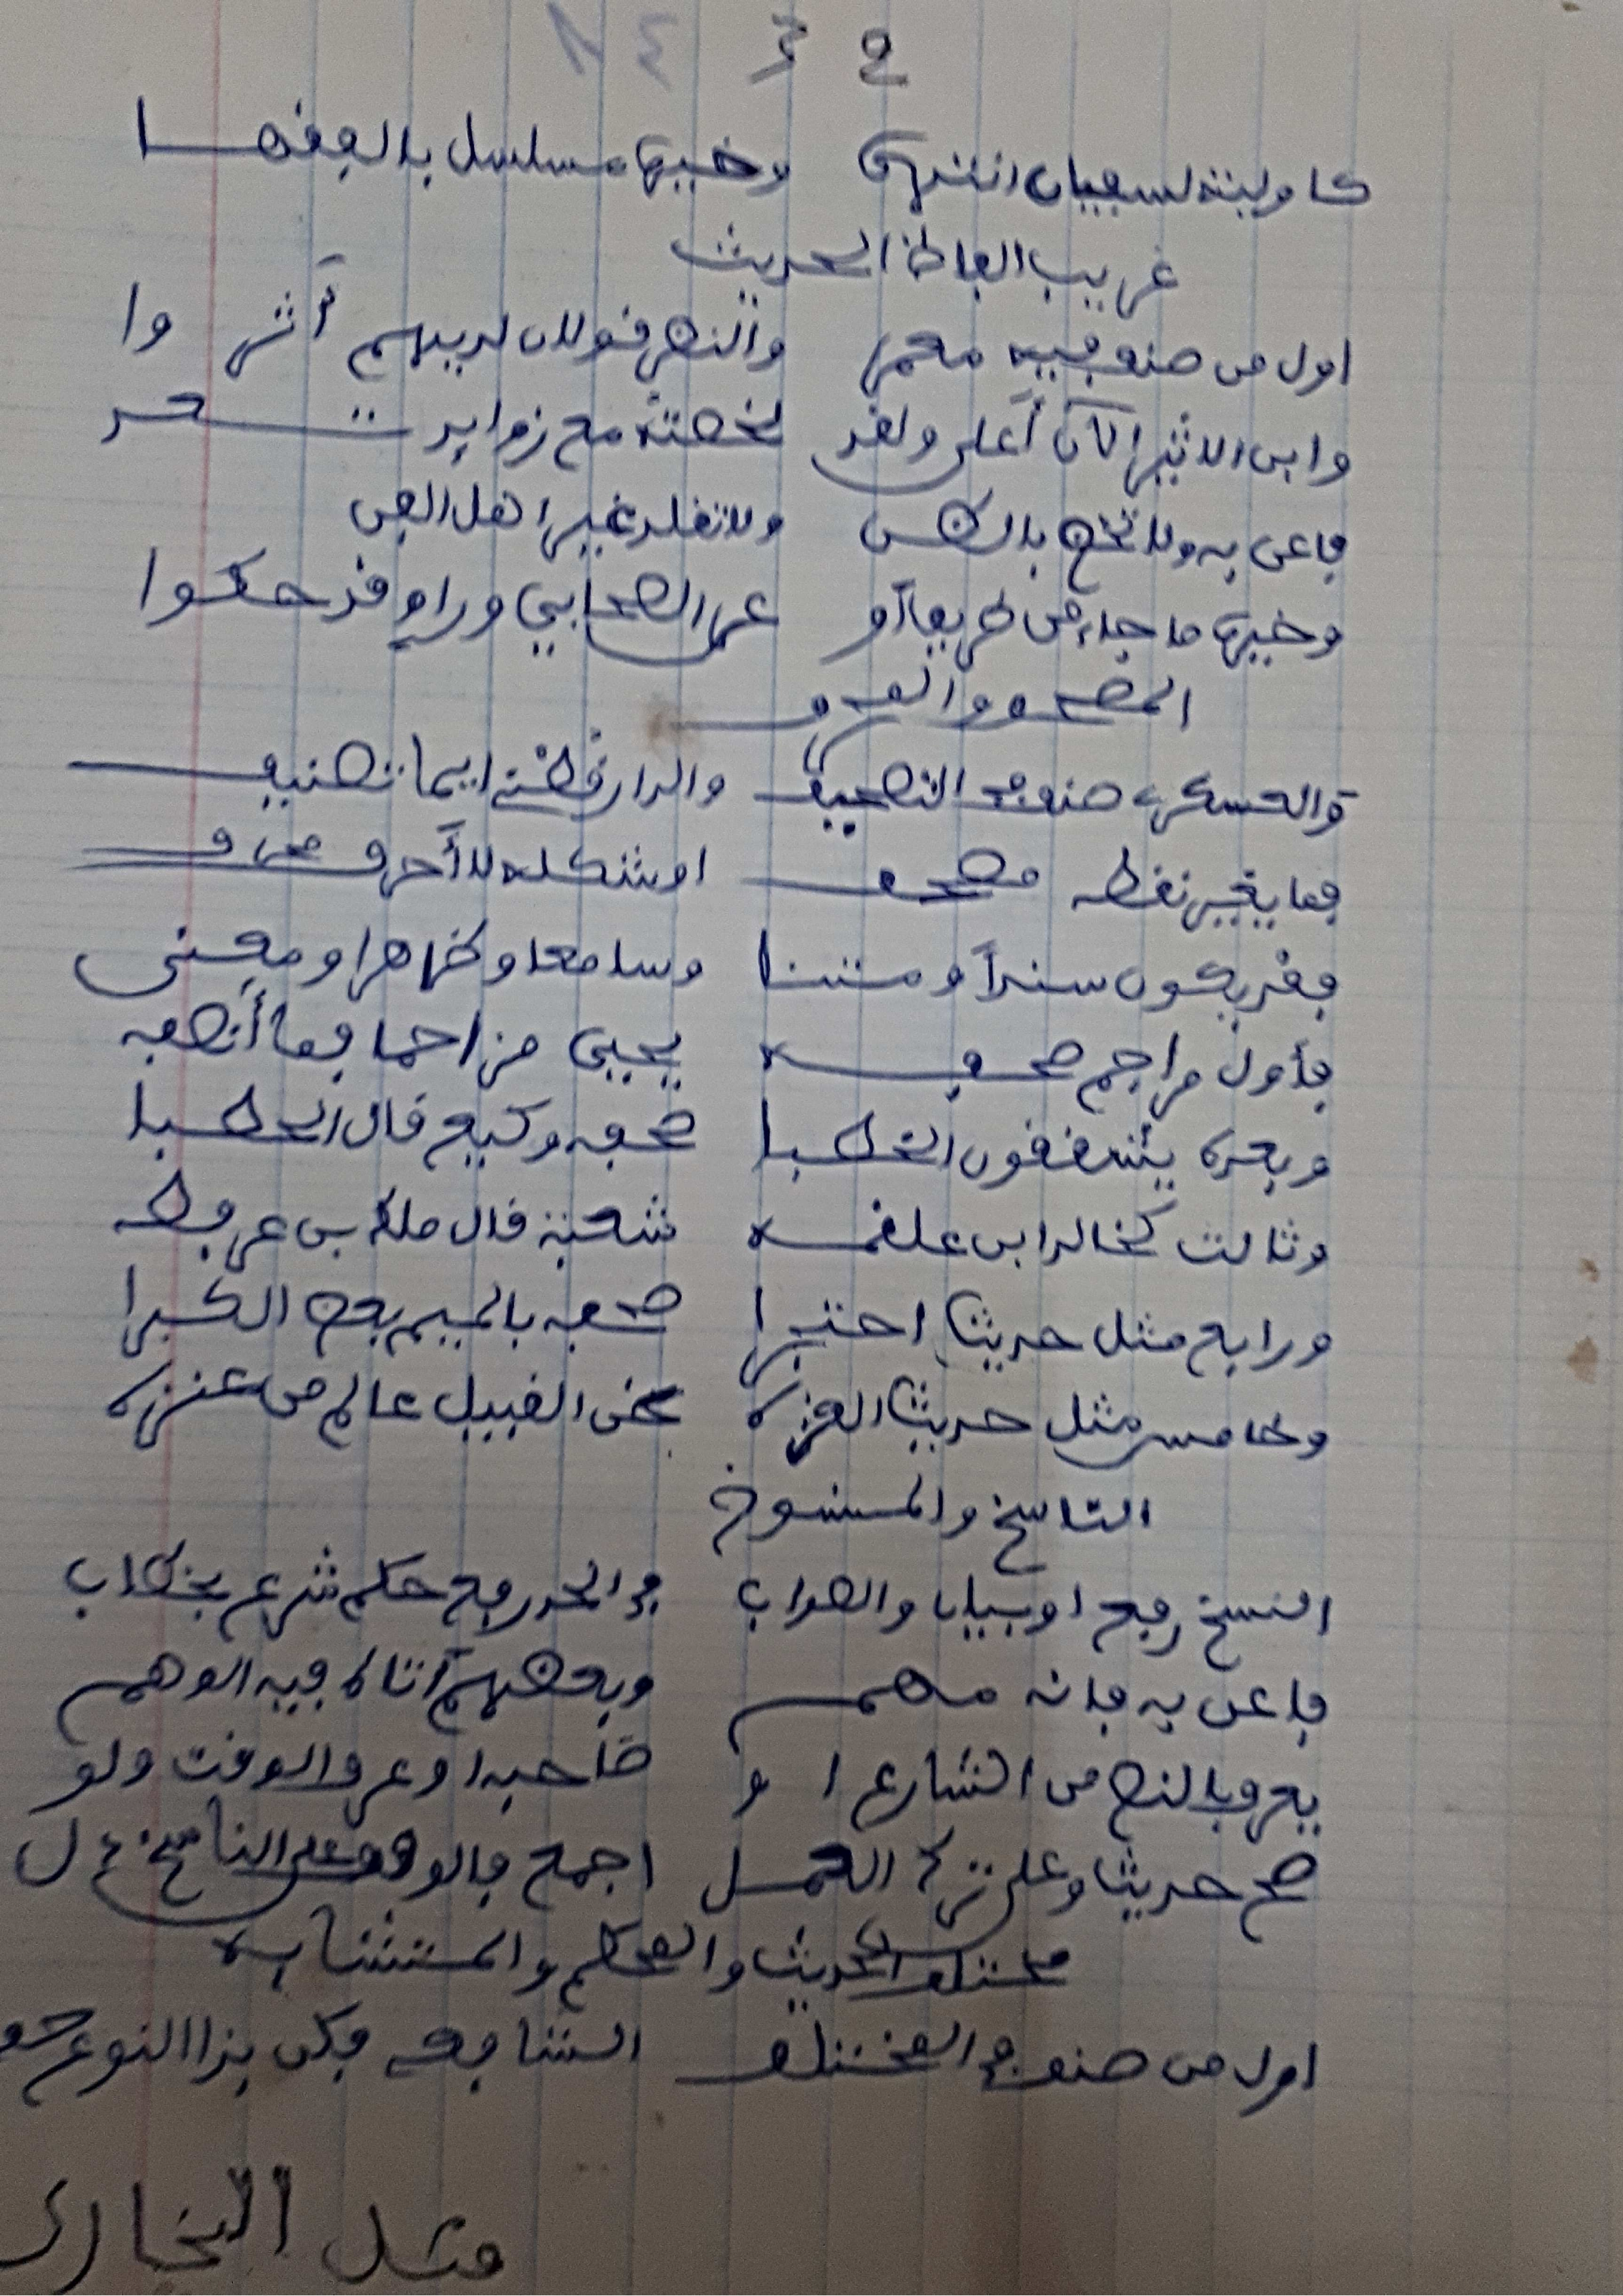 ح ز ٨٤
كاولية لسفيان انتهى وخيره مسلسل بالفقها
غريب الفاظ الحديث
اول من صنف فيه معمر والنضر قولان لديهم أثروا
وابن الاثير الآن أعلى ولقد لخصته مع زوايد تعد
فاعن به ولا تخض بالظن ولا تقلد غير اهل الفن
وخيره ما جاء من طريق أو عن الصحابي وراو قد حكوا
المصحف والمحرف
والعسكري صنف في التصحيف والدارقطني ايما تصنيف
فما يغير نقطه مصحف او شكله لا أحرف محرف
فقد يكون سندا ومتنا وسامعا وظاهرا ومعنى
فأول مراجم صحفه يحيى مزاحما فما أنصفه
وبعده يشققون الخطبا صحفه وكيع قال الحطبا
وثالث كخالد ابن علقمه شعبة قال ملك بن عرفطه
ورابع مثل حديث احتجرا صحفه بالميم بعض الكبرا
وخامس مثل حديث العنزه ظن القبيل عالم من عنزه
الناسخ والمنسوخ
النسخ رفع او بيان والصواب في الحد رفع حكم شرع بخطاب
فاعن به فانه مهم وبعضهم أتاه فيه الوهم
يعرف بالنص من الشارع او صاحبه او عرف الوقت ولو
صح حديث وعلى ترك العمل اجمع فالوفق على الناسخ دل
مختلف الحديث والمحكم والمتشابه
اول من صنف في المختلف الشافعي فكن بذا النوع حف
مثل البخاري